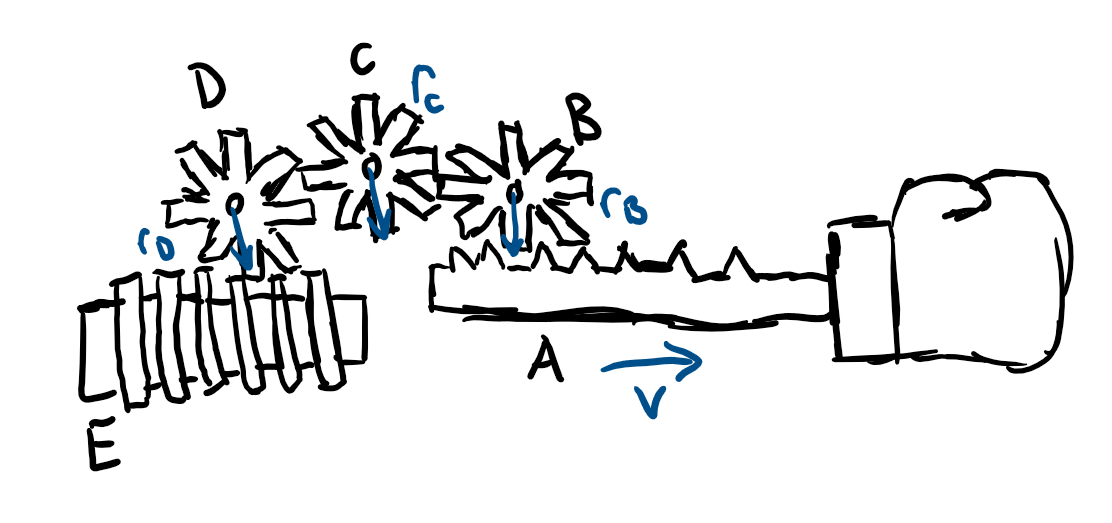 D
C
r_C
B
r_B
r_D
A
V
E